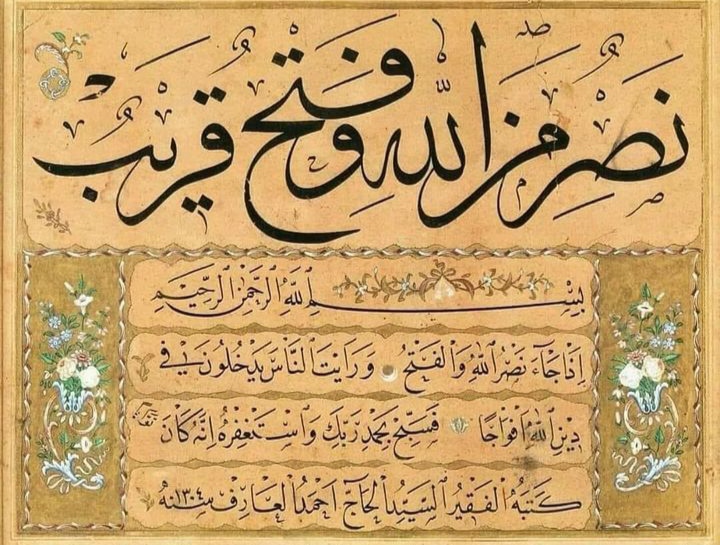 نَصْرٌ مِنَ اللّٰهِ وَفَتْحٌ قَرِيبٌ
بِسْمِ اللّٰهِ الرَّحْمٰنِ الرَّحِيمِ
اِذَا جَاءَ نَصْرُ اللّٰهِ وَالْفَتْحُ وَرَاَيْتَ النَّاسَ يَدْخُلُونَ فِي
دِينِ اللّٰهِ اَفْوَاجًا فَسَبِّحْ بِحَمْدِ رَبِّكَ وَاسْتَغْفِرْهُ اِنَّهُ كَانَ
كَتَبَهُ الْفَقِيرُ السَّيِّدُ الْحَاجّ اَحْمَدُ الْعَارِفْ سنه ١٣٠٤